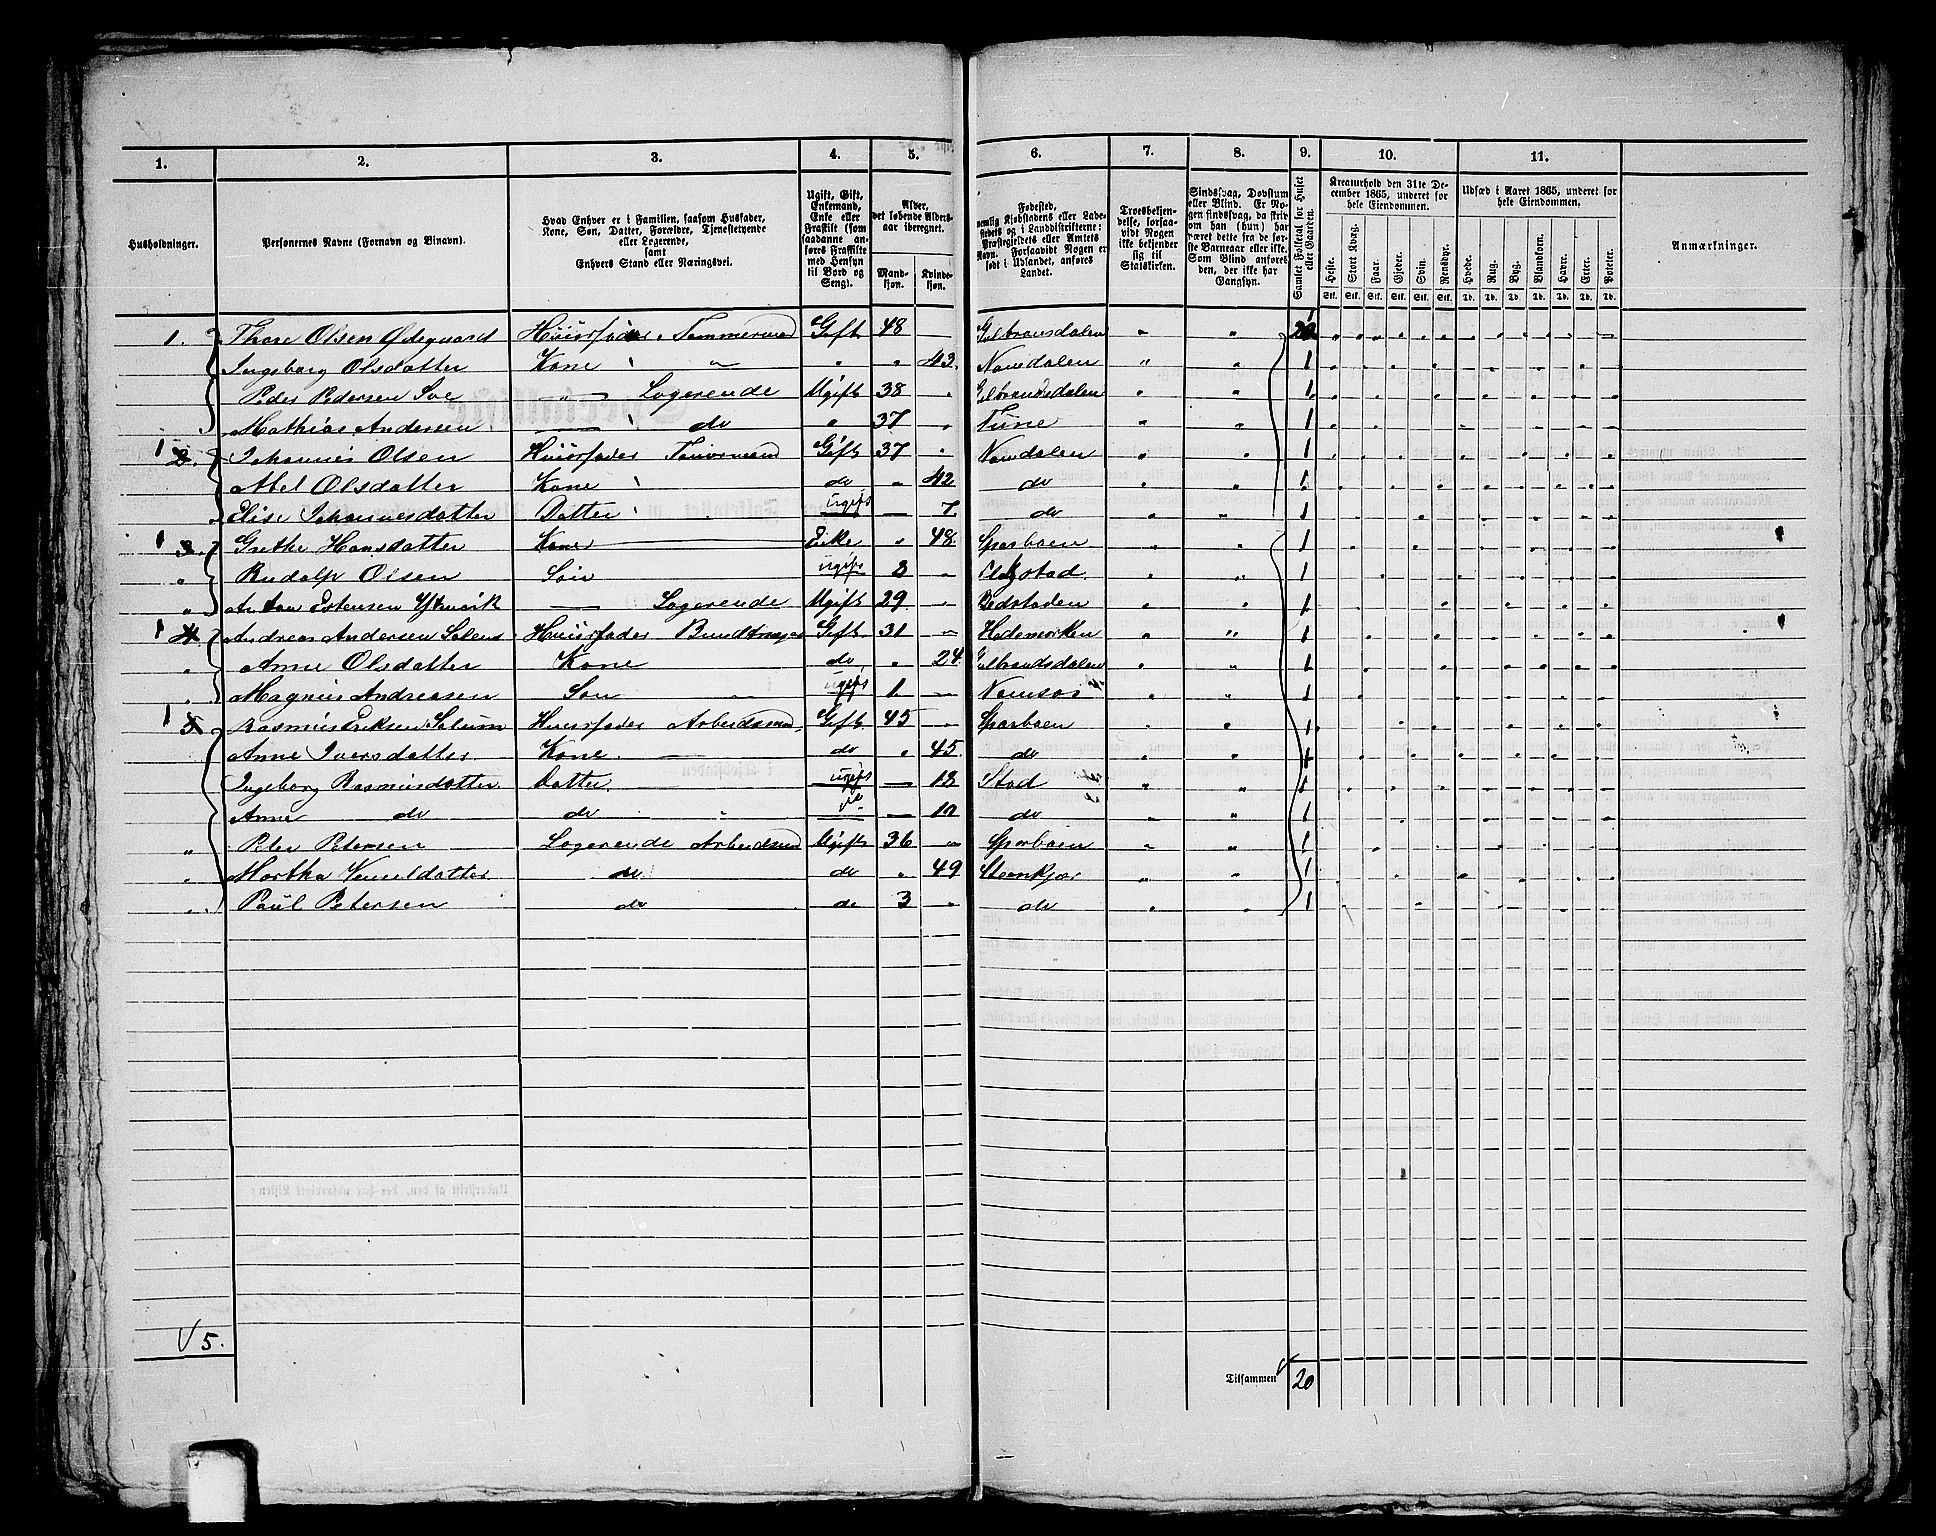 1. 2. 3. 4. 5. 6. 7. 8. 9. 10. 11.
Husholdninger.
Personernes Navne (Fornavn og Binavn).
Hvad Enhver er i Familien, saasom Husfader, Kone, Søn, Datter, Forældre, Tjenestetyende eller Logerende, samt Enhvers Stand eller Næringsvei.
Ugift, Gift, Enkemand, Enke eller Fraskilt (som saadanne anføres Fraskilte med Hensyn til Bord og Seng).
Alder, det løbende Aldersaar iberegnet.
Mandkjøn. Kvindekjøn.
Fødested, nemlig Kjøbstadens eller Ladestedets og i Landdistrikterne: Præstegjeldets eller Amtets Navn. Forsaavidt Nogen er født i Udlandet, anføres Landet.
Troesbekjendelse, forsaavidt Nogen ikke bekjender sig til Statskirken.
Sindssvag, Døvstum eller Blind. Er Nogen sindssvag, da skriv om han (hun) har været dette fra de første Barneaar eller ikke. Som Blind anføres den, der ikke har Gangsyn.
Samlet Folketal for Huset eller Gaarden.
Kreaturhold den 31te December 1865, underet for hele Eiendommen.
Heste. Stort Kvæg. Faar. Gjeder. Svin. Rensdyr.
Udsæd i Aaret 1865, underet for hele Eiendommen.
Hvede. Rug. Byg. Blandkorn. Havre. Erter. Poteter.
Stk. Stk. Stk. Stk. Stk. Stk. Td. Td. Td. Td. Td. Td. Td.
Anmærkninger.
1. Thore Olsen Ødegaard Huusfader Tømmermand Gift 48 Gulbransdalen 20 1
Ingeborg Olsdatter Kone " " " 43. Namdalen 1
Peder Pedersen Soe " Logerende Ugift 38 Gulbrandsdalen 1
Mathias Andersen — do " 37 Tune 1
1 2. Johannes Olsen Huusfader Gift 37 Namdalen 1
Abel Olsdatter Kone do " 42 do 1
Elise Johannesdatter Datter ugift — 7. do 1
1 3. Grethe Hansdatter Kone Enke " 48. Sparboen 1
" Rudolf Olsen Søn ugift 2 1
" Estensen Logerende Ugift 29 1
1 4. Andreas Andersen Huusfader Gift 31 Hedemarken 1
" Anne Olsdatter Kone do " 24. Gulbrandsdalen 1
" Magnus Andreasen Søn ugift 1 — Namsos 1
1 5 Rasmus Eriksen Salum Huusfader Arbeidsmd. Gift 45 Sparboen 1
Anne Iversdatter Kone. do " 45. do 1
Ingeborg Rasmusdatter Datter. ugift — 13 Stod 1
Anne do do do — 10 do 1
" Peter Petersen Logerende Arbeidsmd Ugift 36 Sparboen 1
" Martha do do " 49 Steenkjær 1
" Paul Petersen do do 3 " do 1
5.
Tilsammen 20